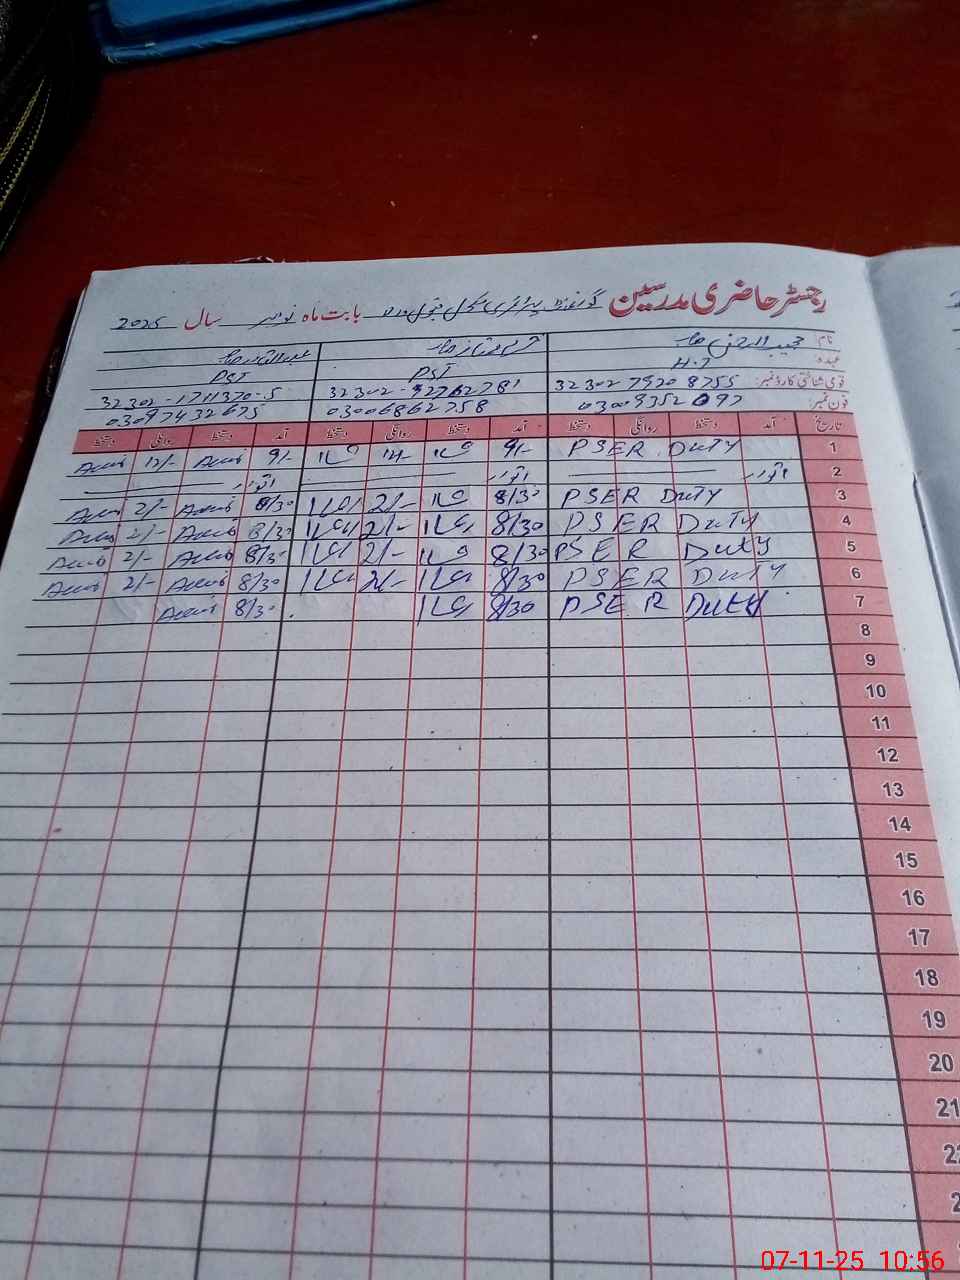 رجسٹر حاضری مدرسین گورنمنٹ پرائمری سکول بابت ماہ نومبر سال 2025
نام: مجیب الرحمن
عہدہ: H.T PST PST
قومی شناختی کارڈ نمبر: 32302 7920 8755 32302-92762781 32302-1711370-5
فون نمبر: 03008352097 03006862758 03097432675
تاریخ آمد دستخط روانگی دستخط آمد دستخط روانگی دستخط آمد دستخط روانگی دستخط
1 PSER DUTY 9/- 12/- 9/- 12/-
2 اتوار اتوار اتوار
3 PSER DUTY 8/30 2/- 8/30 2/-
4 PSER DuTY 8/30 2/- 8/30 2/-
5 PSER DutY 8/30 2/- 8/30 2/-
6 PSER DuTY 8/30 2/- 8/30 2/-
7 PSER DutY 8/30 8/30
8
9
10
11
12
13
14
15
16
17
18
19
20
21
07-11-25 10:56